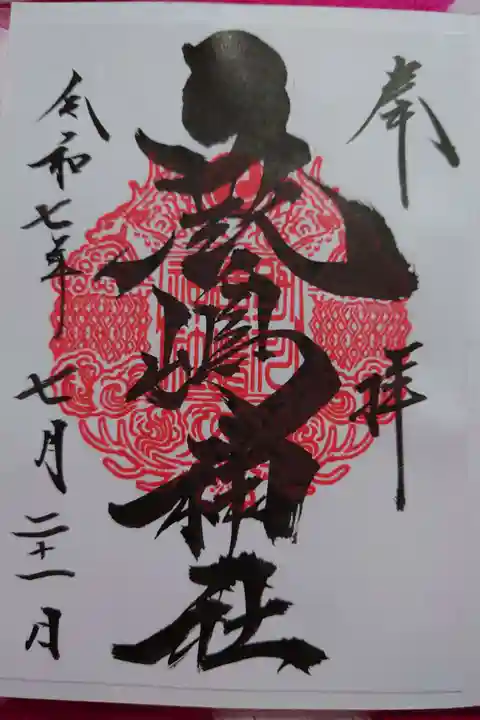 奉拝
厳嶋神社
令和七年七月二十一日